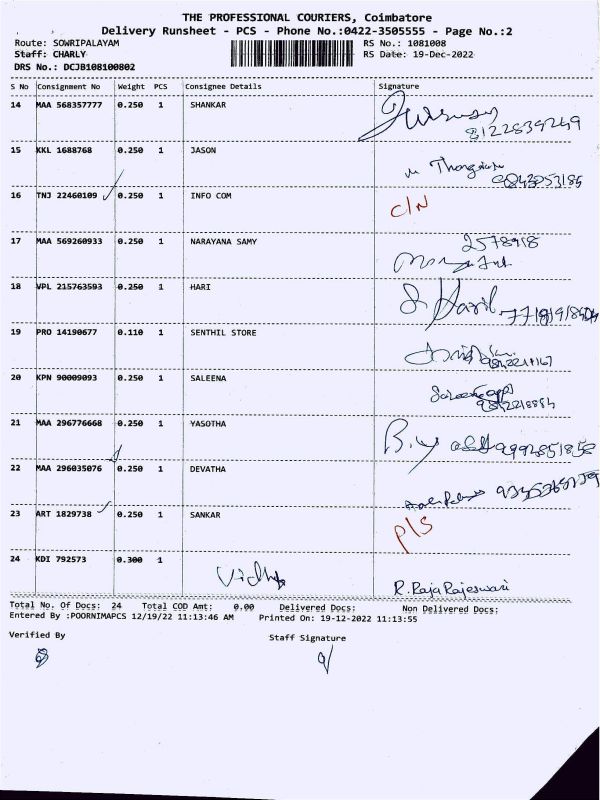 THE PROFESSIONAL COURIERS, Coimbatore
Delivery Runsheet - PCS - Phone No.:0422-3505555 - Page No.:2
Route: SOWRIPALAYAM RS No.: 1081008
Staff: CHARLY RS Date: 19-Dec-2022
DRS No.: DCJB108100802
S No Consignment No Weight PCS Consignee Details Signature
14 MAA 568357777 0.250 1 SHANKAR
8122839249
15 KKL 1688768 0.250 1 JASON
16 TNJ 22460109 0.250 1 INFO COM C/N
17 MAA 569260933 0.250 1 NARAYANA SAMY 2578918
18 VPL 215763593 0.250 1 HARI
19 PRO 14190677 0.110 1 SENTHIL STORE
20 KPN 90009093 0.250 1 SALEENA
21 MAA 296776668 0.250 1 YASOTHA
22 MAA 296035076 0.250 1 DEVATHA
23 ART 1829738 0.250 1 SANKAR P/S
24 KDI 792573 0.300 1
R. Raja Rajeswari
Total No. Of Docs: 24 Total COD Amt: 0.00 Delivered Docs: Non Delivered Docs:
Entered By :POORNIMAPCS 12/19/22 11:13:46 AM Printed On: 19-12-2022 11:13:55
Verified By Staff Signature